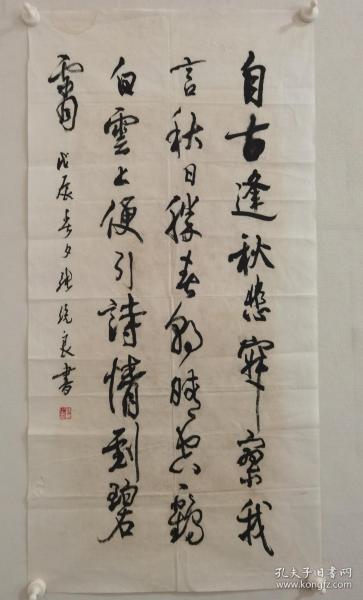 自古逢秋悲寂寥我
言秋日勝春朝晴空一鶴
白雲上便引詩情到碧
霄 戊辰春夕 良書
孔夫子旧书网
www.kongfz.com